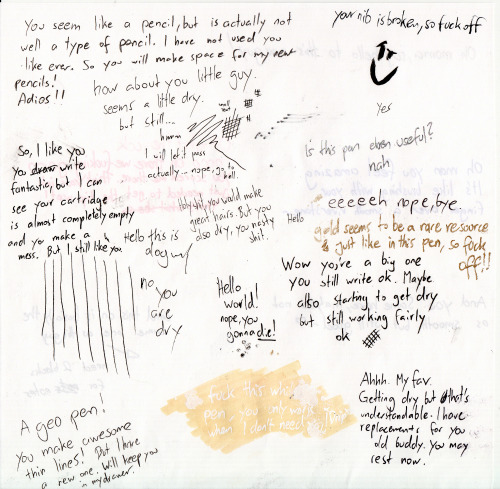 You seem like a pencil, but is actually not
well a type of pencil. I have not used you
like ever. So you will make space for my new
pencils!
Adios!!
your nib is broken, so fuck off
how about you little guy.
seems a little dry.
but still...
hmmm
I will let it pass
actually... nope, go to
hell.
Yes
Is this pen even useful?
nah
So, I like you
You write
fantastic, but I can
see your cartridge
is almost completely empty
and you make a
mess. But I still like you
you would make
great hairs. But you
also dry, you nasty
shit!
eeeeeh nope, bye.
Hello
gold seems to be a rare resource
just like in this pen, so fuck
off!!
Hello this is
no
you
are
dry
Hello
world!
nope, you
gonna die!
Wow you're a big one
you still write ok. Maybe
also starting to get dry
but still working fairly
ok
fuck this
pen, you only work
when I don't need
Ahhh. My fav.
Getting dry but that's
understandable. I have
replacements for you
old buddy. You may
rest now.
A geo pen!
You make awesome
thin lines! But I have
a new one. Will keep you
in my drawer.